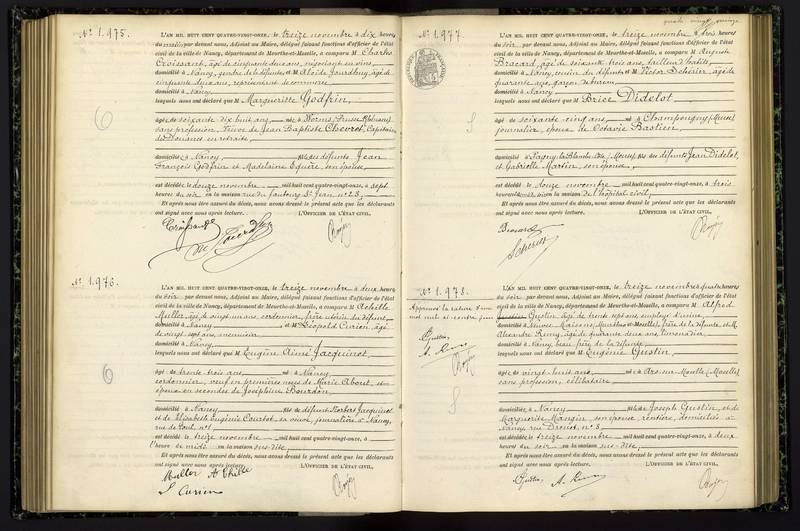 N° 1.975.
L'AN MIL HUIT CENT QUATRE-VINGT-ONZE, le treize novembre à dix heures
du matin, par devant nous, Adjoint au Maire, délégué faisant fonctions d'officier de l'état
civil de la ville de Nancy, département de Meurthe-et-Moselle, a comparu M Charles
Croissant, âgé de cinquante deux ans, négociant en vins,
domicilié à Nancy, gendre de la défunte, et M Aloïde âgé de
cinquante deux ans, représentant de commerce
domicilié à Nancy
lesquels nous ont déclaré que M Marguerite Godfrin,
âgée de soixante dix huit ans, née à Worms (Prusse Rhénane)
sans profession, Veuve de Jean Baptiste Chevrot, Capitaine
de Douanes en retraite
domiciliée à Nancy fille des défunts Jean
François Godfrin et Madelaine son épouse
est décédée le douze novembre mil huit cent quatre-vingt-onze, à sept
heures du soir en la maison rue du faubourg St Jean n° 23,
Et après nous être assuré du décès, nous avons dressé le présent acte que les déclarants
ont signé avec nous après lecture. L'OFFICIER DE L'ÉTAT CIVIL,
N° 1.976.
L'AN MIL HUIT CENT QUATRE-VINGT-ONZE, le treize novembre à deux heures
du soir par devant nous, Adjoint au Maire, délégué faisant fonctions d'officier de l'état
civil de la ville de Nancy, département de Meurthe-et-Moselle, a comparu M Achille
Muller, âgé de vingt un ans, cordonnier, frère utérin du défunt
domicilié à Nancy et M Léopold Curien, âgé
de vingt sept ans, menuisier
domicilié à Nancy
lesquels nous ont déclaré que M Eugène Aimé Jacquinot,
âgé de trente trois ans, né à Nancy
cordonnier, veuf en premières noces de Marie et
époux en secondes de Joséphine Bourdon
domicilié à Nancy fils de défunt Norbert Jacquinot
et de Elisabeth Eugénie Courtot sa veuve, journalière à Nancy,
rue de Toul, n° 1
est décédé le treize novembre mil huit cent quatre-vingt-onze, à
l'heure de midi en la maison sus-dite
Et après nous être assuré du décès, nous avons dressé le présent acte que les déclarants
ont signé avec nous après lecture. L'OFFICIER DE L'ÉTAT CIVIL,
Muller Achille
L Curien
quatre vingt quinze
N° 1.977.
L'AN MIL HUIT CENT QUATRE-VINGT-ONZE, le treize novembre à trois heures
du soir, par devant nous, Adjoint au Maire, délégué faisant fonctions d'officier de l'état
civil de la ville de Nancy, département de Meurthe-et-Moselle, a comparu M Auguste
Bracard, âgé de soixante trois ans, tailleur d'habits,
domicilié à Nancy, cousin du défunt et M Victor Scherier, âgé de
quarante ans, garçon de bureau
domicilié à Nancy
lesquels nous ont déclaré que M Brice Didelot,
âgé de soixante cinq ans, né à Champougny (Meuse)
journalier, époux de Octavie Bastien
domicilié à Pagny la Blanche Côte (Meuse), fils des défunts Jean Didelot,
et Gabrielle Martin, son épouse
est décédé le douze novembre mil huit cent quatre-vingt-onze, à trois
heures du soir en la maison de l'hôpital civil,
Et après nous être assuré du décès, nous avons dressé le présent acte que les déclarants
ont signé avec nous après lecture. L'OFFICIER DE L'ÉTAT CIVIL,
Bracard
Scherier
N° 1.978.
L'AN MIL HUIT CENT QUATRE-VINGT-ONZE, le treize novembre à heures
du soir par devant nous, Adjoint au Maire, délégué faisant fonctions d'officier de l'état
civil de la ville de Nancy, département de Meurthe-et-Moselle, a comparu M Alfred
Gustin, âgé de trente sept ans, employé d'usine,
domicilié à (Meurthe et Moselle), frère de la défunte, et M
Alexandre Remy, âgé de quarante deux ans, limonadier
domicilié à Nancy, beau frère de la défunte
lesquels nous ont déclaré que M Eugénie Gustin,
Approuvé la rature d'un
mot nul ci contre
A. Remy
âgée de vingt huit ans, née à Ars-sur-Moselle (Moselle)
sans profession, célibataire
domiciliée à Nancy fille de Joseph Gustin, et de
Marguerite Mangin, son épouse, rentiers, domiciliés à
Nancy, rue Drouot, n° 8
est décédée le treize novembre mil huit cent quatre-vingt-onze, à deux
heures du soir en la maison sus-dite
Et après nous être assuré du décès, nous avons dressé le présent acte que les déclarants
ont signé avec nous après lecture. L'OFFICIER DE L'ÉTAT CIVIL,
Gustin A. Remy